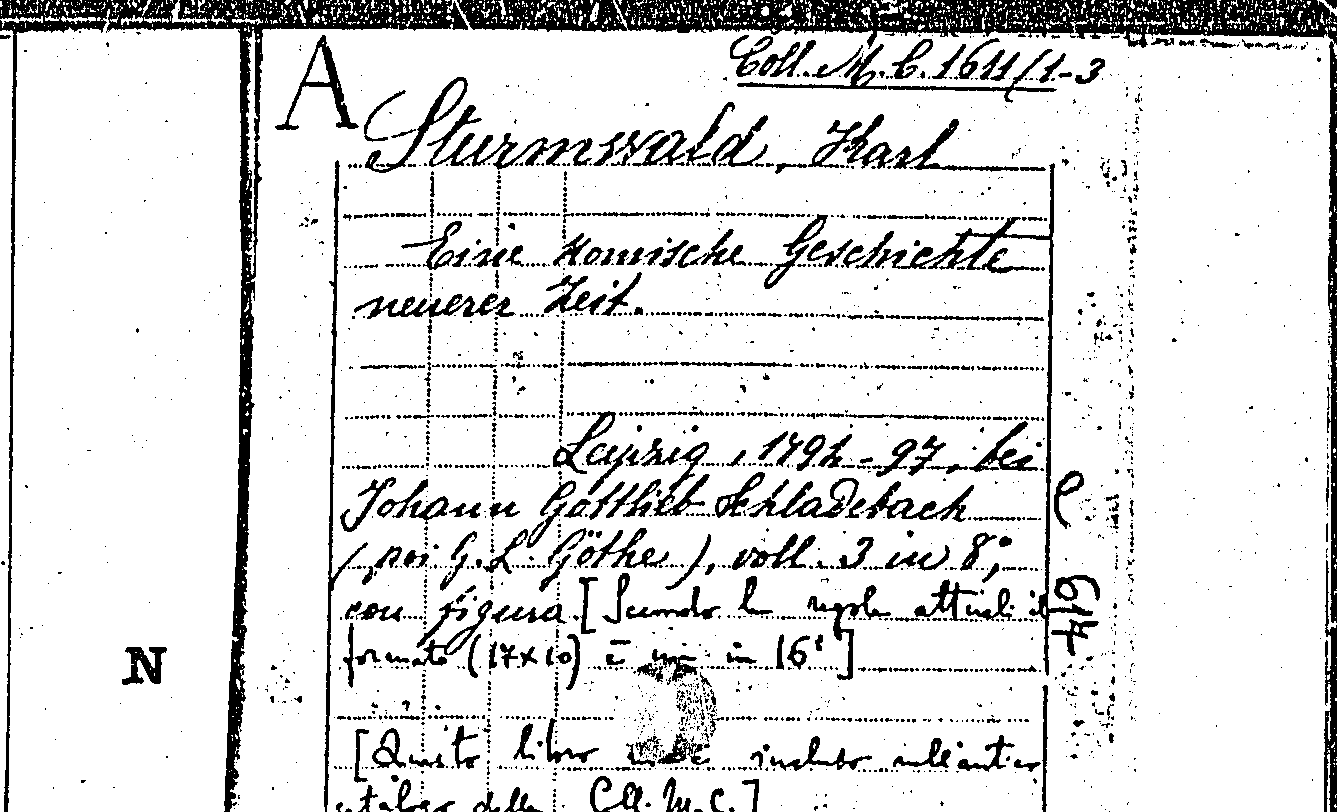 A
Coll. M. C. 1611/1-3
Sturmwald, Karl
Eine komische Geschichte
neuerer Zeit.
Leipzig, 1792-97, bei
Johann Gottlieb Schladebach
(poi G. L. Göthe), voll. 3 in 8°,
con figura. [Secondo le regole attuali il
formato (17x10) è in 16°]
N
[Questo libro incluso nell'antico
catalogo della Coll. M. C.]